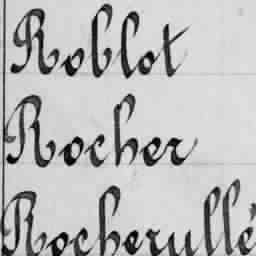 Roblot
Rocher
Rocherullé